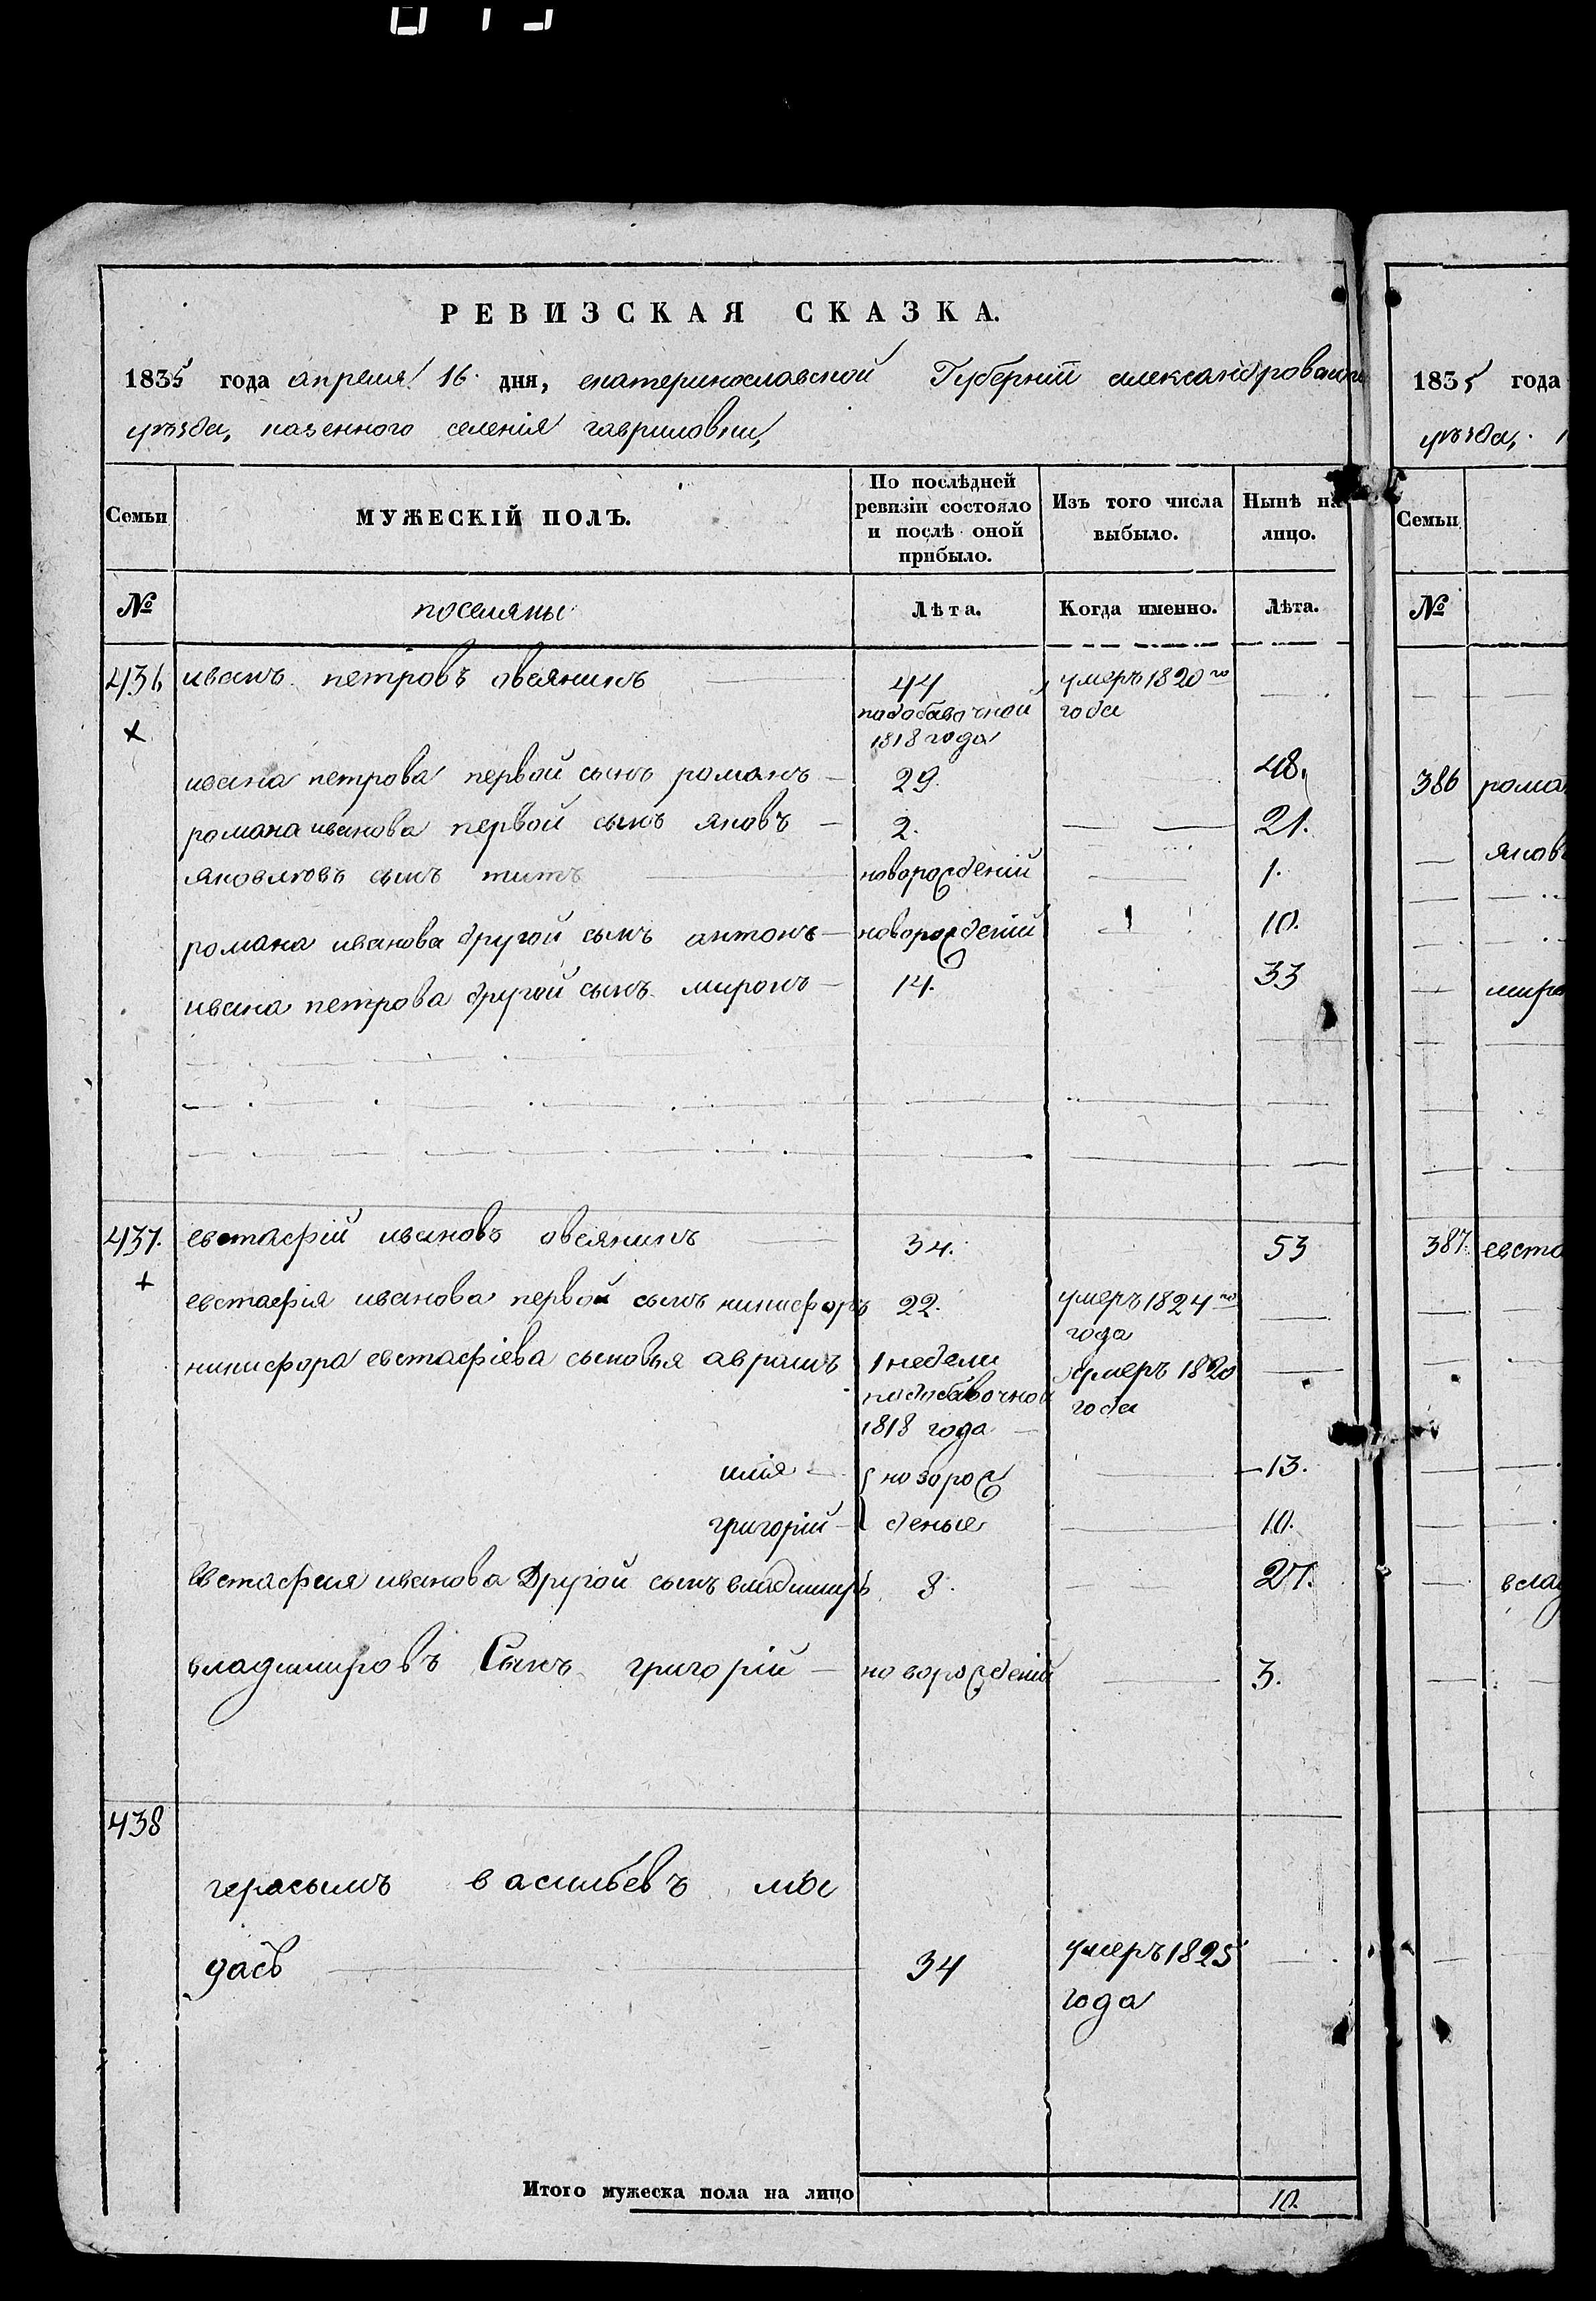 РЕВИЗСКАЯ СКАЗКА.
1835 года апреля 16 дня, екатеринославской Губерніи александровского
уѣзда, казенного селенія гавриловки,
Семьи
МУЖЕСКІЙ ПОЛЪ.
По послѣдней ревизіи состояло и послѣ оной прибыло.
Изъ того числа выбыло.
Нынѣ на лицо.
№ поселяны Лѣта. Когда именно. Лѣта.
436 иванъ петровъ овсяникъ 44 умеръ 1820го
подобавочной года
1818 года
ивана петрова первой сынъ романъ 29. 48.
романа иванова первой сынъ яковъ 2. 21.
яковлювъ сынъ титъ новорожденій 1.
романа иванова другой сынъ антонъ новорожденій 10.
ивана петрова другой сынъ миронъ 14. 33
437. евстафій ивановъ овсяникъ 34. 53
+
евстафія иванова первой сынъ никифоръ 22. умеръ 1824го
года
никифора евстафіева сыновья аврамъ 1 недели умеръ 1820
подобавочной года
1818 года
илія новорож 13.
григорій деные 10.
Евстафия иванова Другой сынъ владимиръ 8. 27.
владимировъ Сынъ григорій новорожденій 3.
438
герасымъ васильевъ
34 умеръ 1825
года
Итого мужеска пола на лицо 10.
1835 года
уѣзда,
Семьи
№
386 рома
яковъ
миро
387. евста
влад